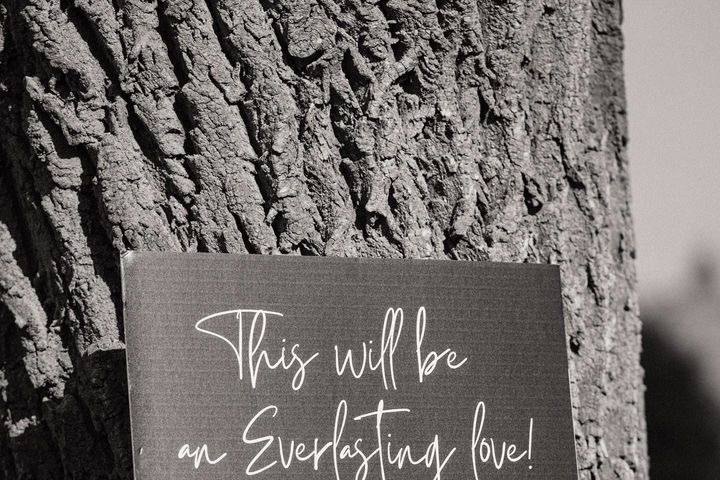 This will be
an Everlasting love!